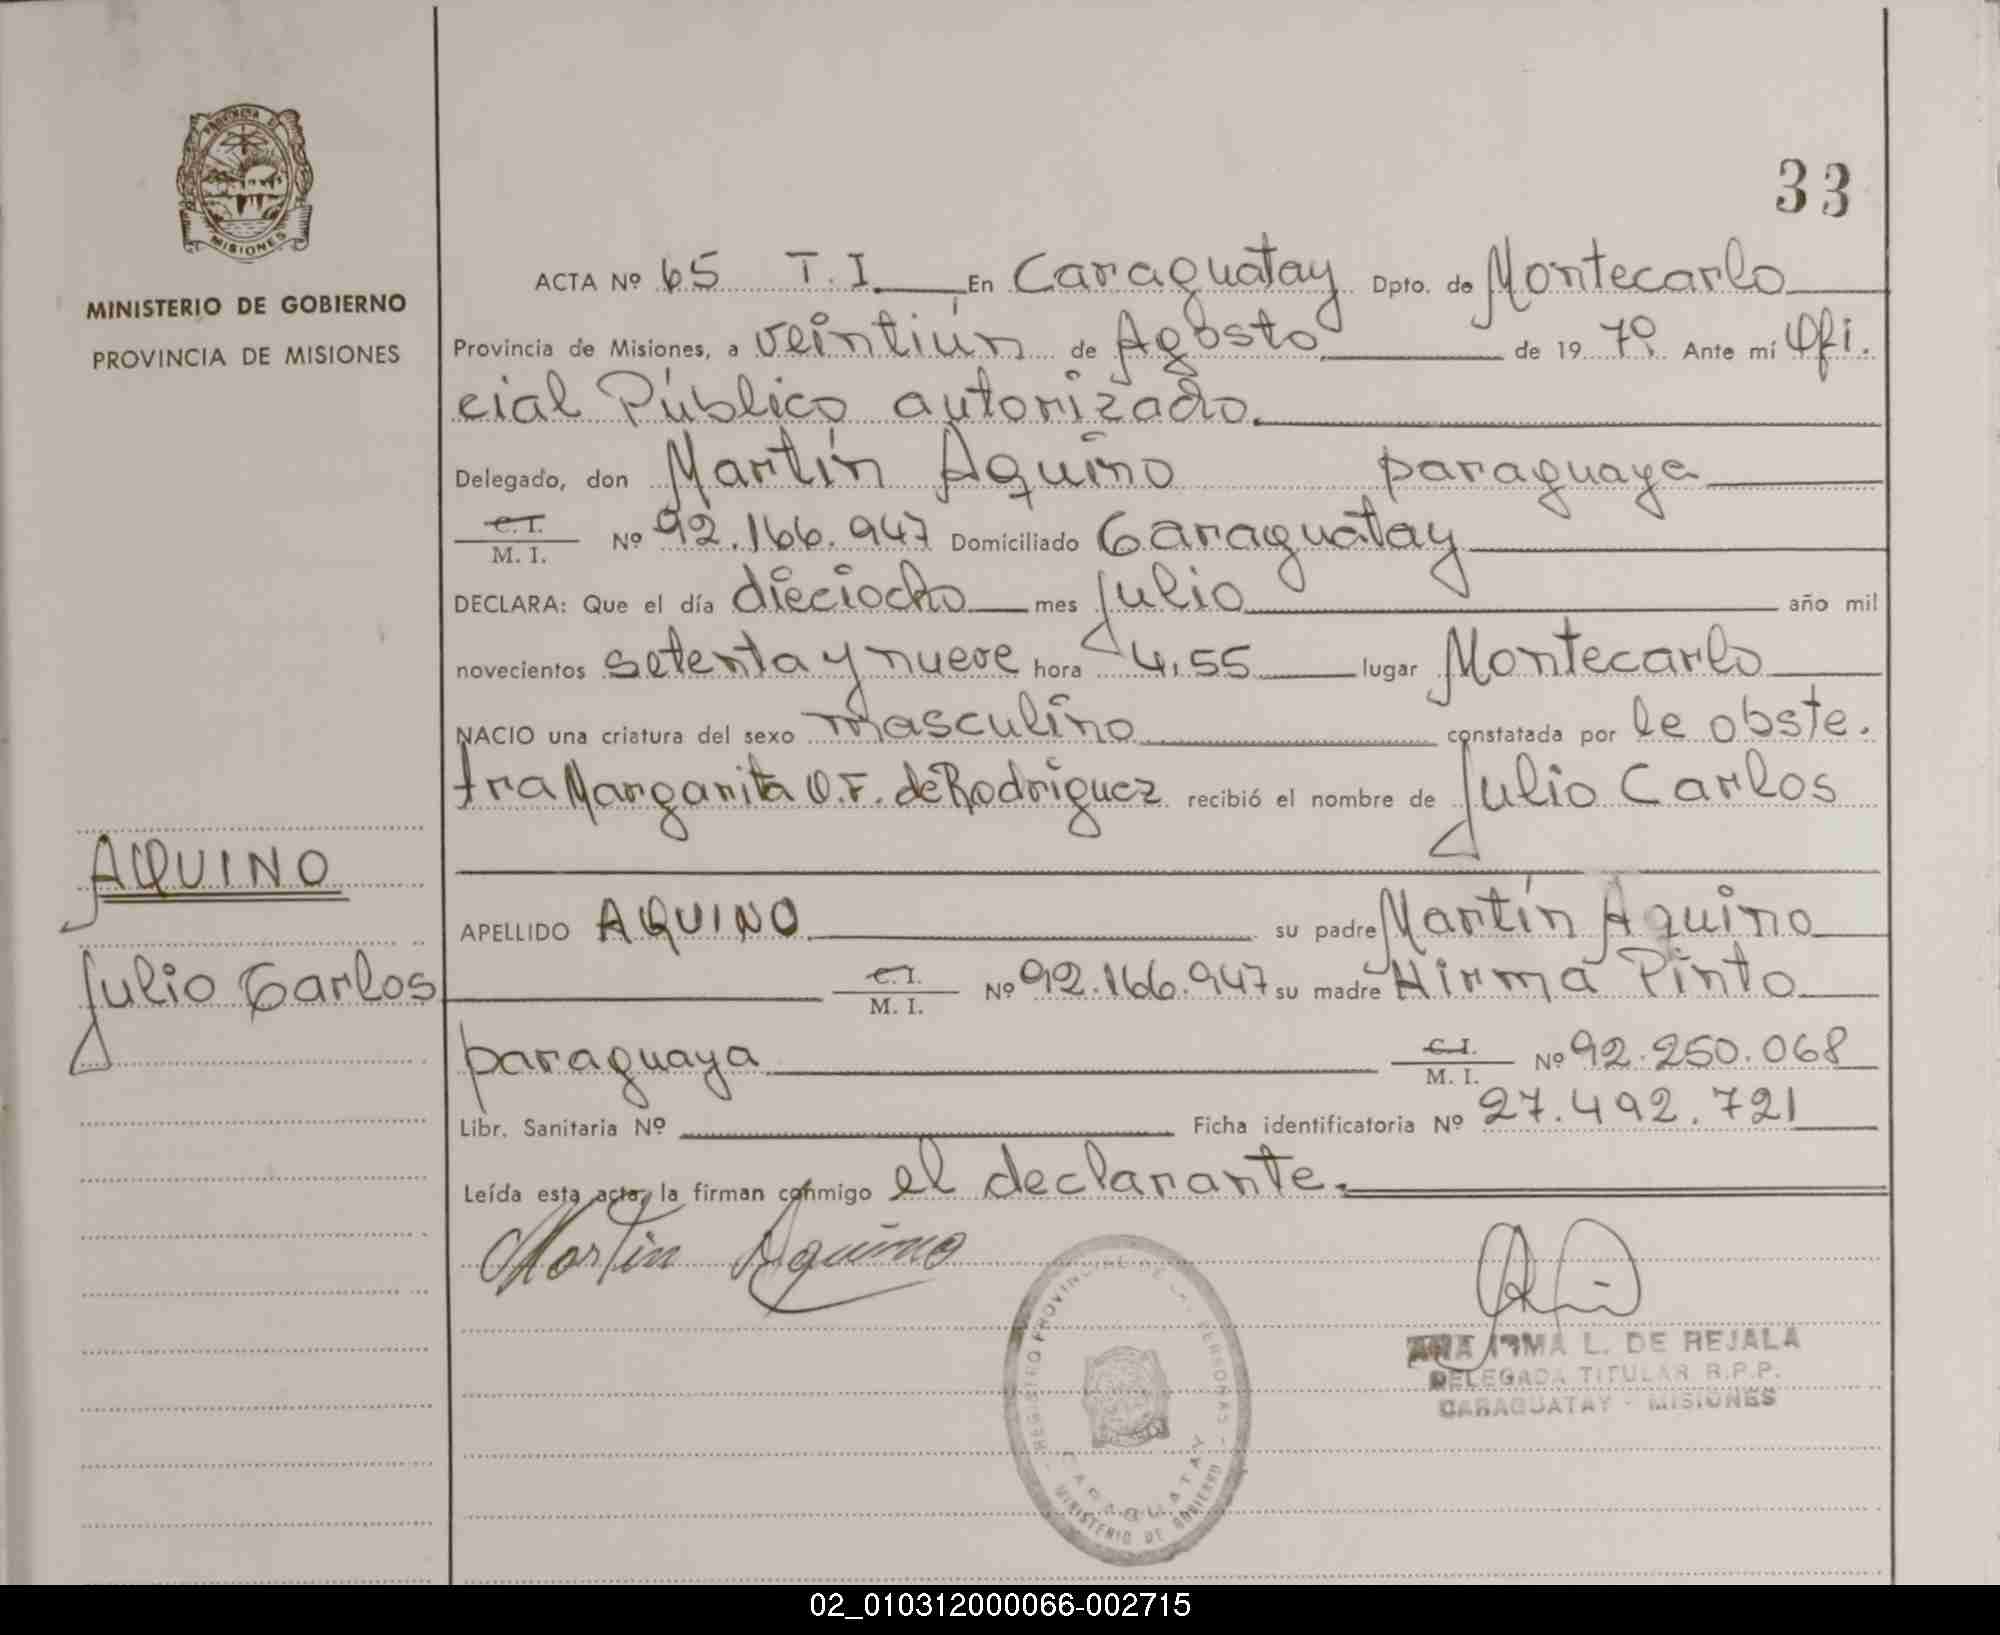 33
MINISTERIO DE GOBIERNO
PROVINCIA DE MISIONES
ACTA Nº 65 T. I. En Caraguatay Dpto. de Montecarlo
Provincia de Misiones, a veintiún de Agosto de 19 79 Ante mí Ofi.
cial Público autorizado.
Delegado, don Martín Aquino paraguaya
C. I.
M. I. Nº 92.166.947 Domiciliado Caraguatay
DECLARA: Que el día dieciocho mes Julio año mil
novecientos setenta y nueve hora 4,55 lugar Montecarlo
NACIO una criatura del sexo masculino constatada por le obste.
tra Margarita O.F. de Rodriguez recibió el nombre de Julio Carlos
AQUINO
APELLIDO AQUINO su padre Martín Aquino
Julio Carlos
C. I.
M. I. Nº 92.166.947 su madre Hirma Pinto
paraguaya C. I.
M. I. Nº 92.250.068
Libr. Sanitaria Nº Ficha identificatoria Nº 27.492.721
Leída esta acta, la firman conmigo el declarante.
Martin Aquino
ANA IRMA L. DE REJALA
DELEGADA TITULAR R.P.P.
CARAGUATAY - MISIONES
REGISTRO PROVINCIAL DE LAS PERSONAS
CARAGUATAY
MINISTERIO DE GOBIERNO
PROVINCIA DE
MISIONES
02_010312000066-002715